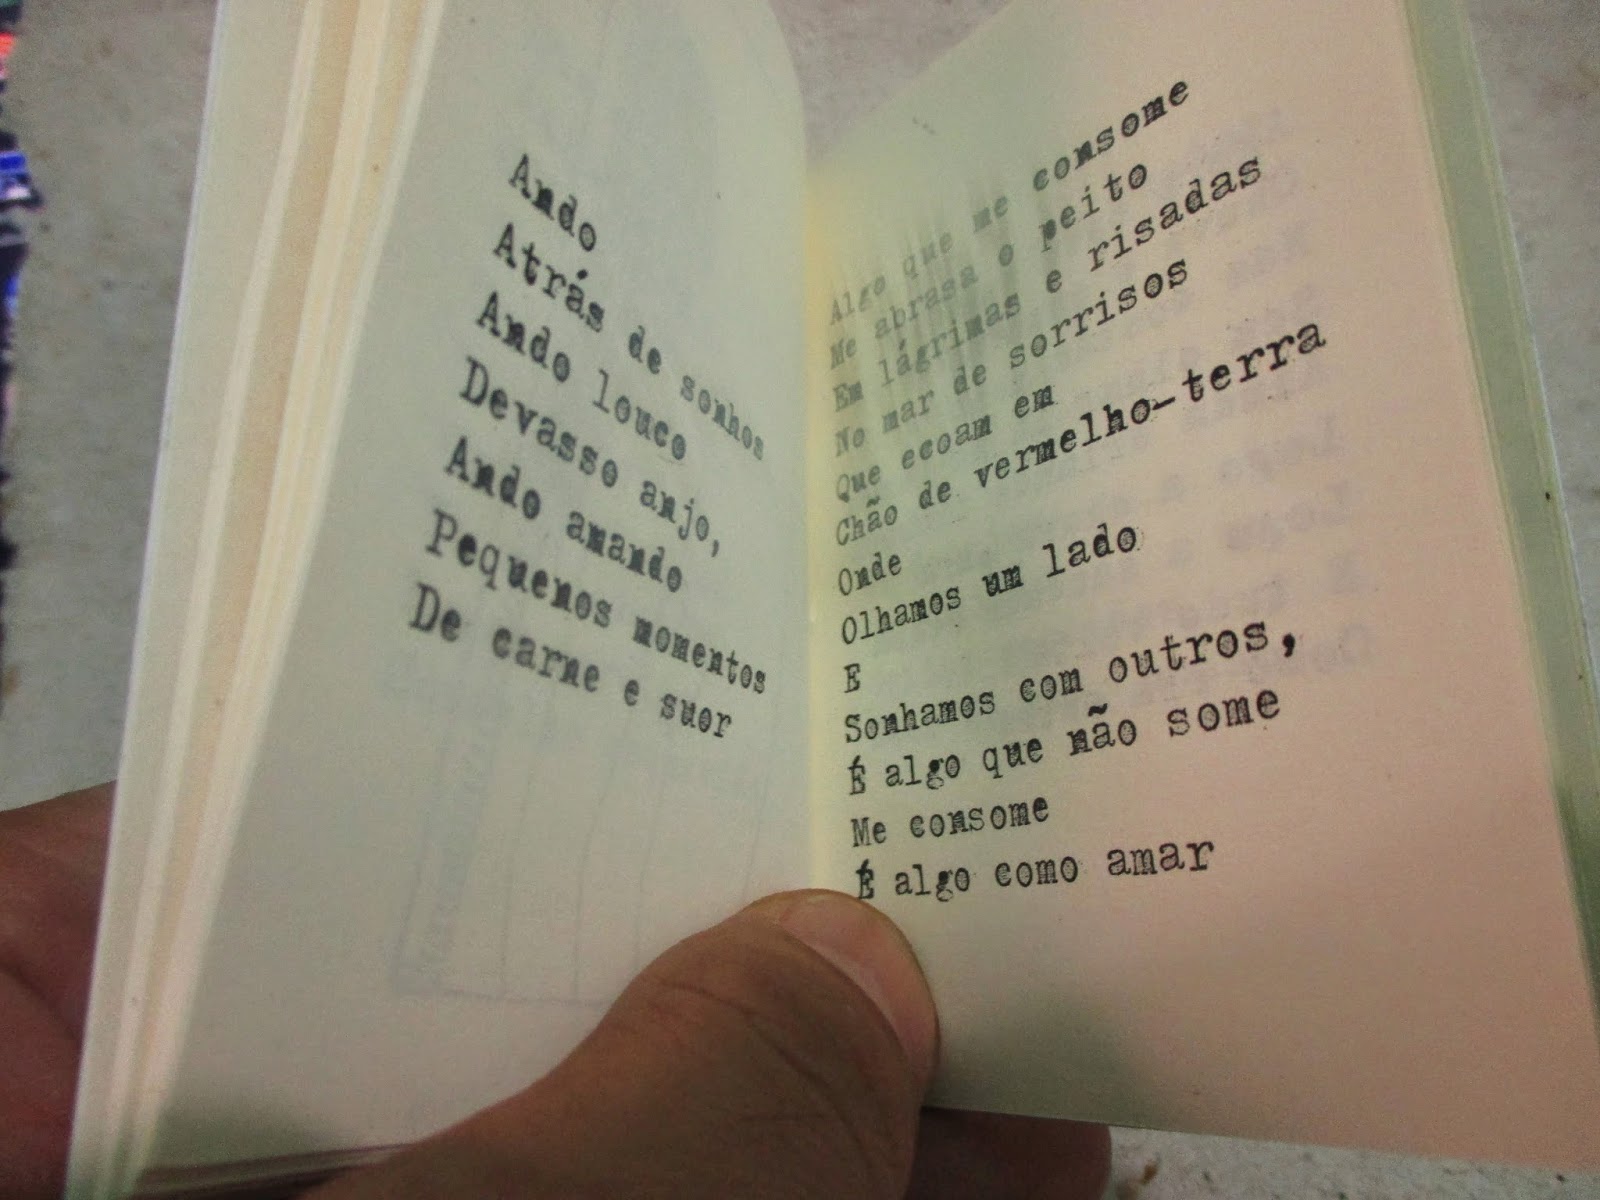 Ando
Atrás de sonhos
Ando louco
Devasso anjo,
Ando amando
Pequenos momentos
De carne e suor
Algo que me consome
Me abrasa o peito
Em lágrimas e risadas
No mar de sorrisos
Que ecoam em
Chão de vermelho-terra
Onde
Olhamos um lado
E
Sonhamos com outros,
É algo que não some
Me consome
É algo como amar